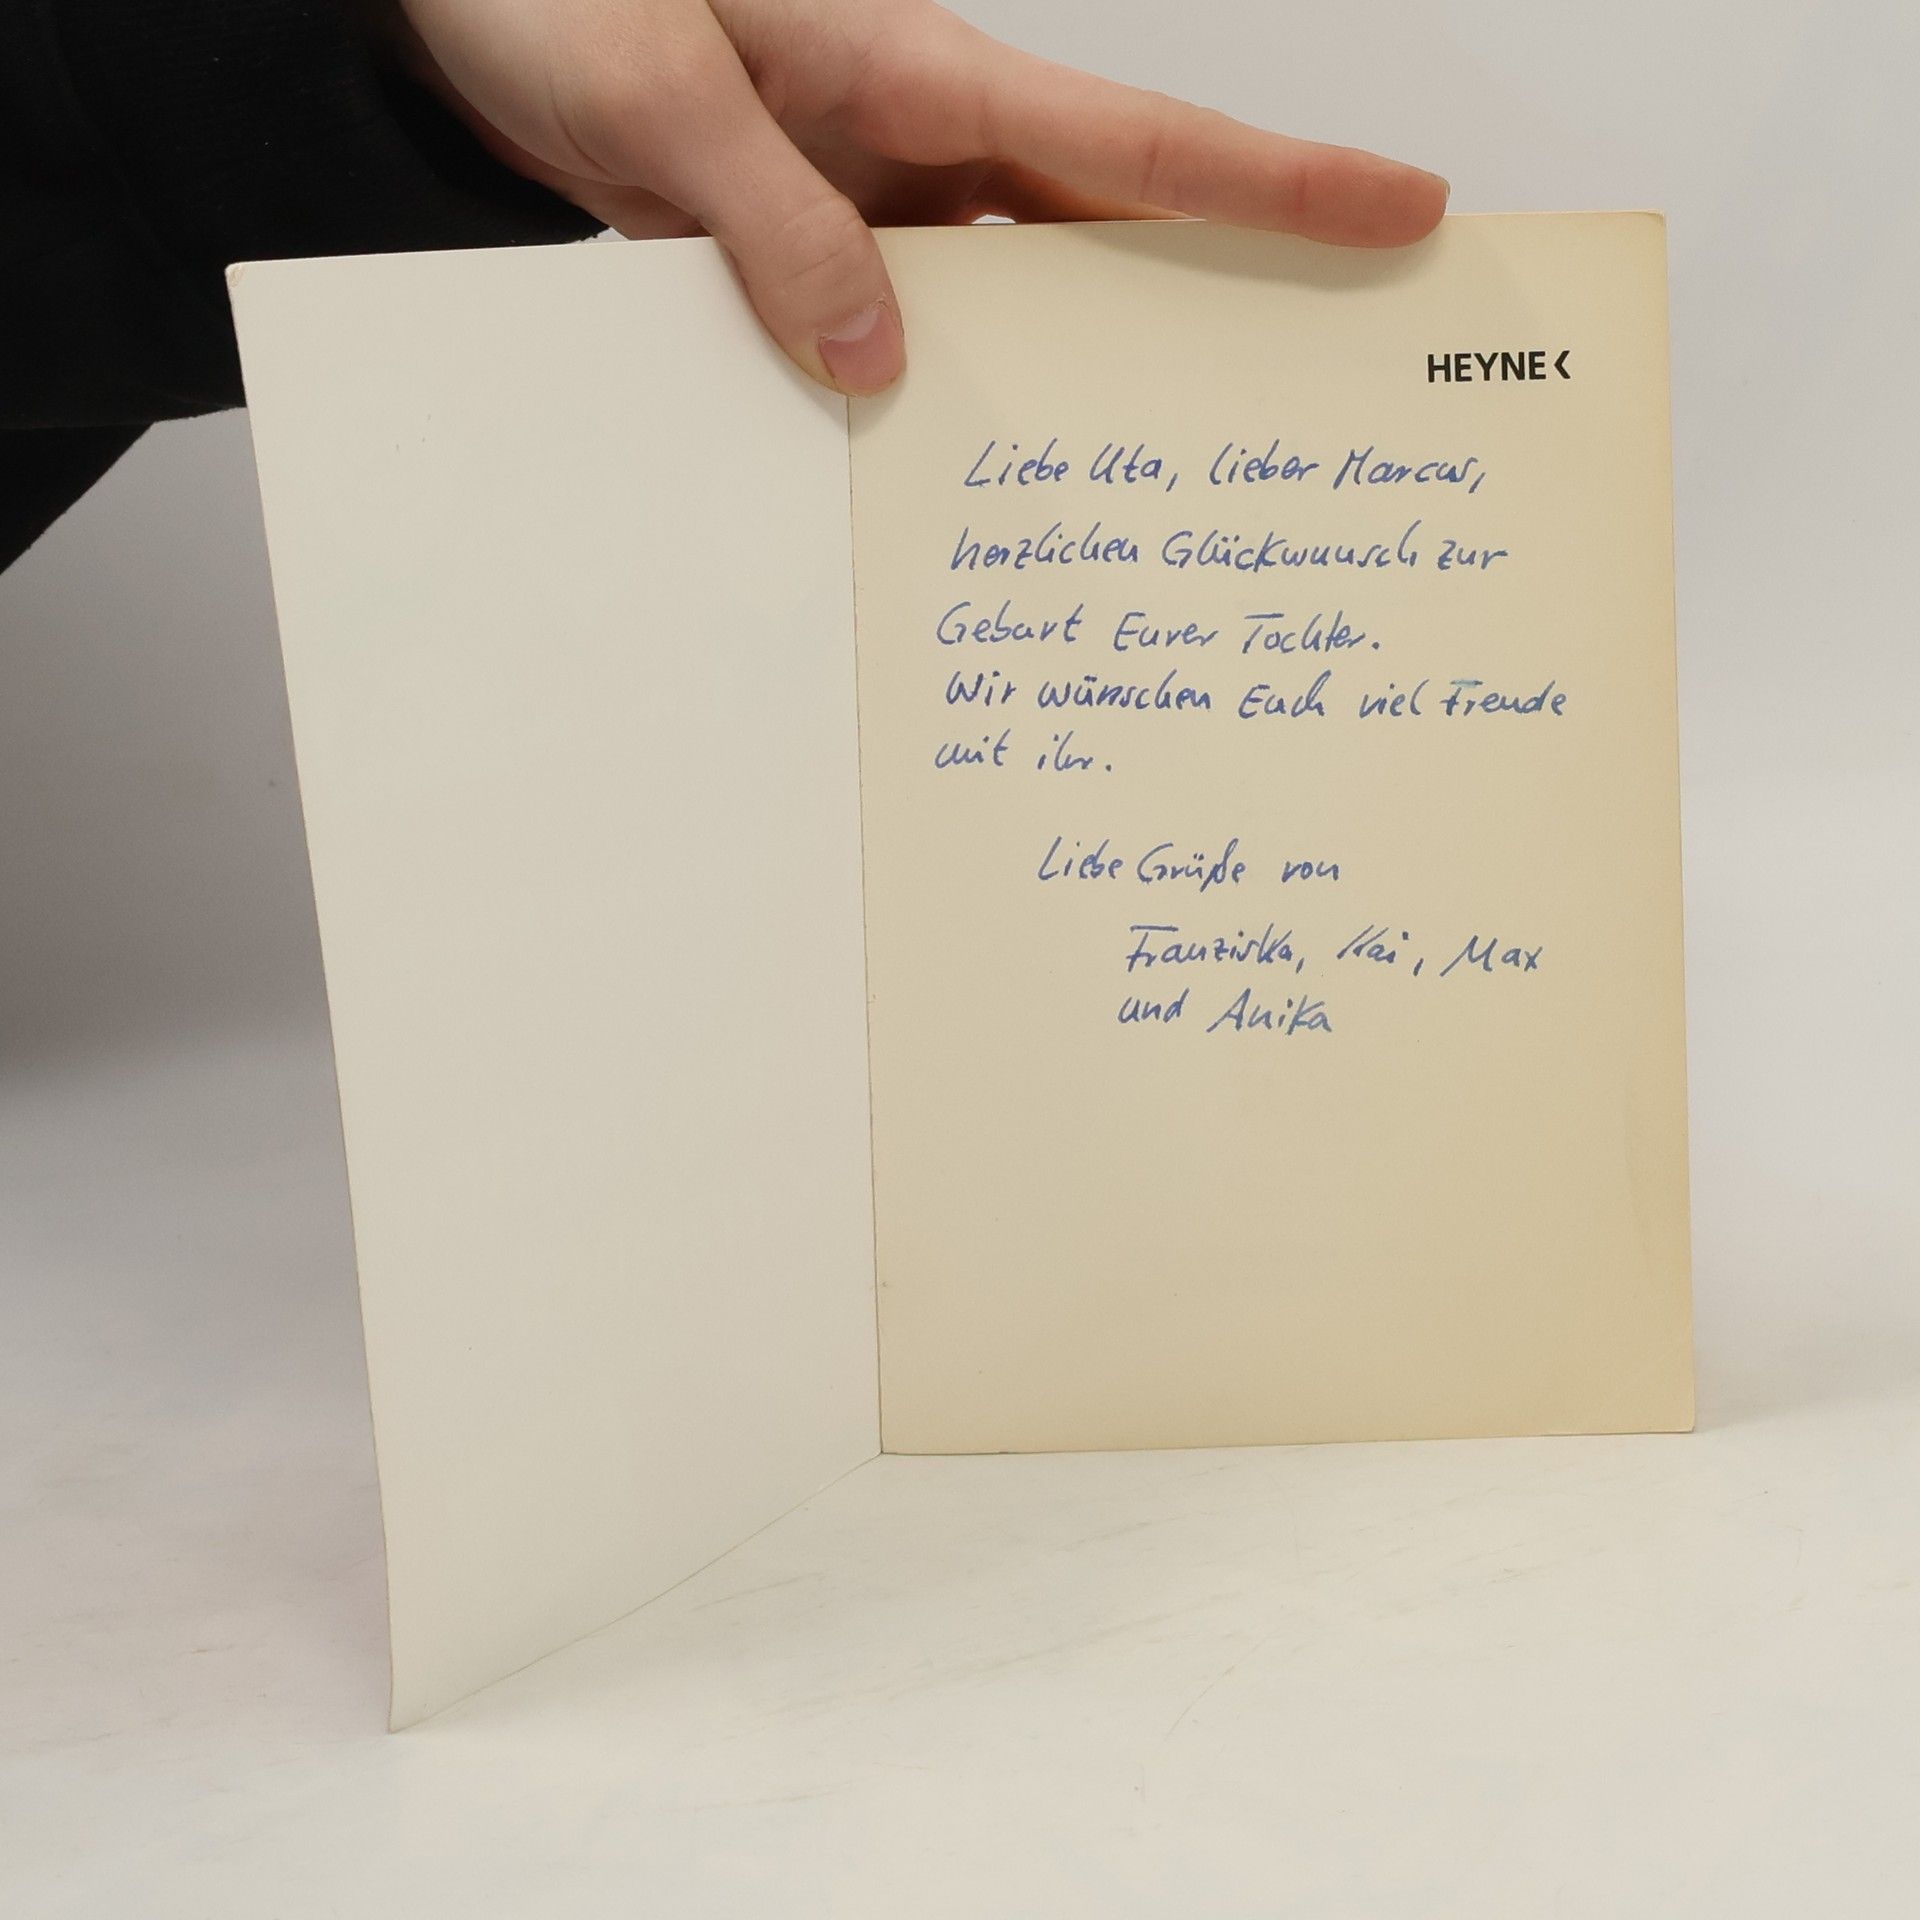 HEYNE<
Liebe Uta, lieber Marcus,
herzlichen Glückwunsch zur
Geburt Eurer Tochter.
Wir wünschen Euch viel Freude
mit ihr.
Liebe Grüße von
Franziska, Kai, Max
und Anika